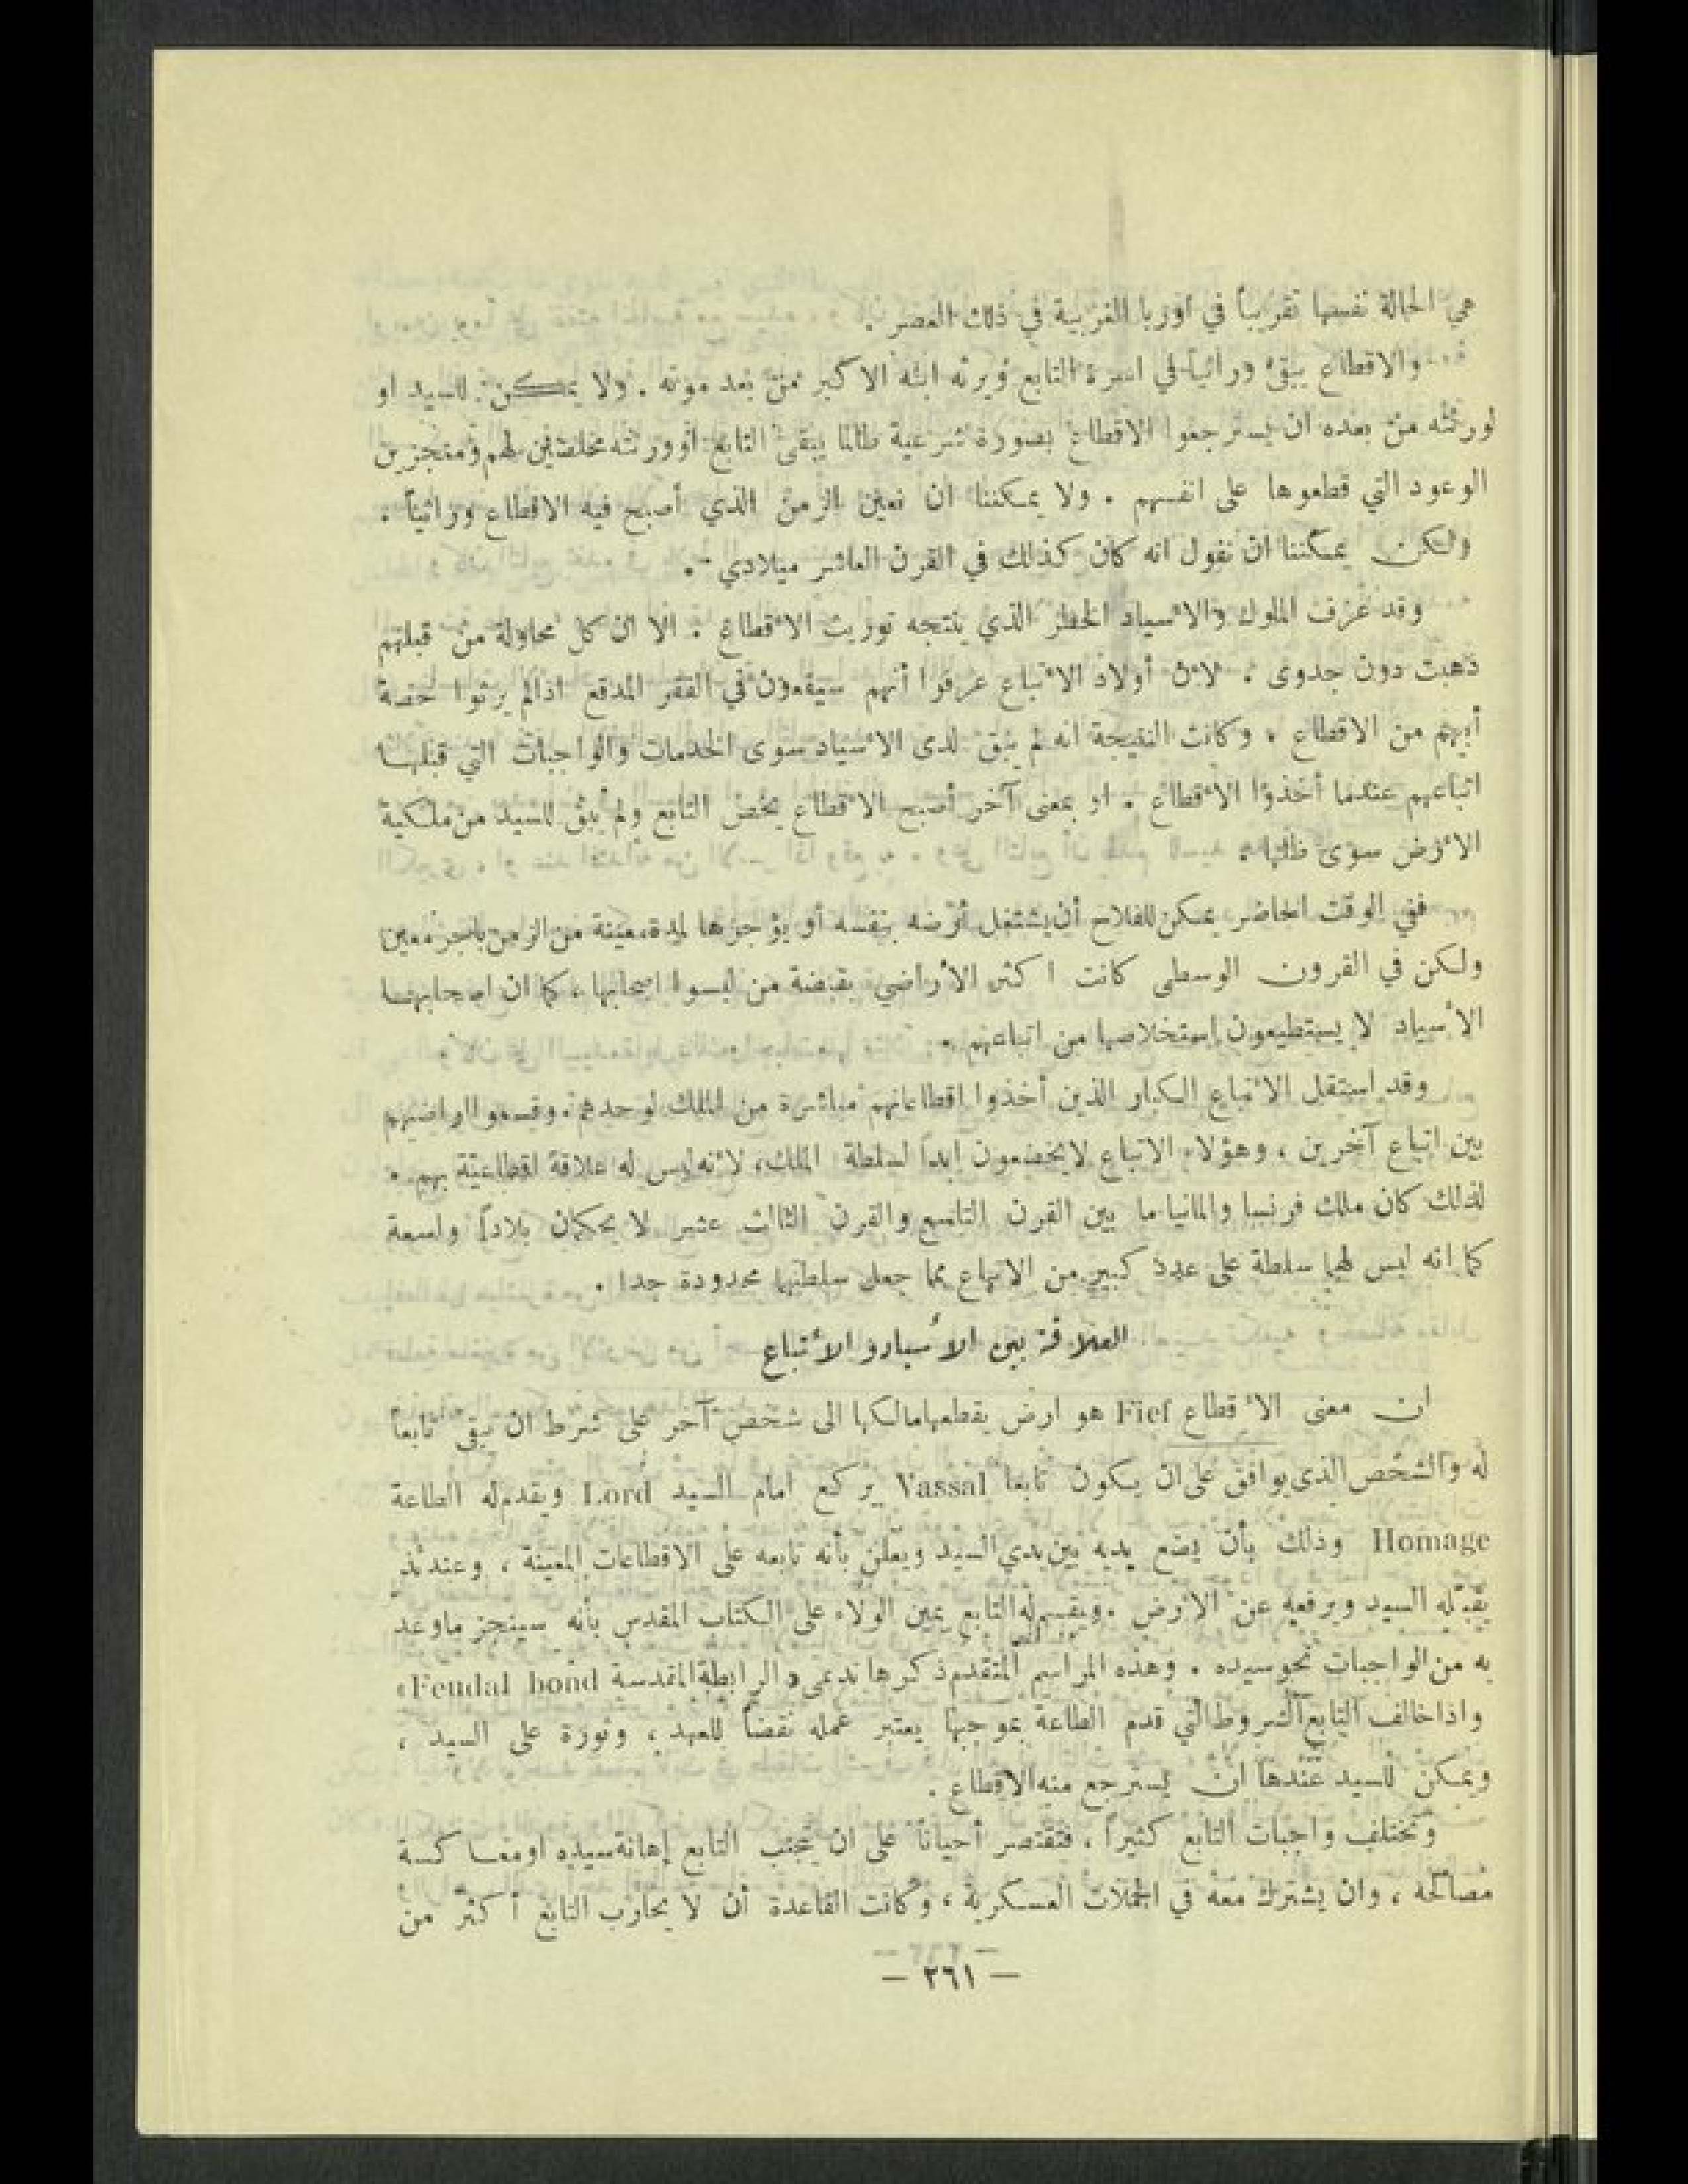 هي الحالة نفسها تقريباً في اوربا الغربية في ذلك العصر .
والاقطاع يبقى وراثياً في اسرة التابع ويرثه ابنه الاكبر من بعد موته . ولا يمكن للسيد او
لورثته من بعده ان يسترجعوا الاقطاع بصورة شرعية طالما يبقى التابع او ورثته مخلصين لهم ومنجزين
الوعود التي قطعوها على انفسهم . ولا يمكننا ان نعين الزمن الذي أصبح فيه الاقطاع وراثياً .
ولكن يمكننا ان نقول انه كان كذلك في القرن العاشر ميلادي .
وقد عرف الملوك والأسياد الخطر الذي ينتجه توريث الأقطاع . الا ان كل محاولة من قبلهم
ذهبت دون جدوى . لأن أولاد الأتباع عرفوا أنهم سيقعون في الفقر المدقع اذا لم يرثوا حصة
أبيهم من الاقطاع . وكانت النتيجة انه لم يبق لدى الأسياد سوى الخدمات والواجبات التي قبلها
اتباعهم عندما أخذوا الأقطاع . او بمعنى آخر أصبح الأقطاع يخص التابع ولم يبق للسيد من ملكية
الأرض سوى ظلها .
ففي الوقت الحاضر يمكن للفلاح أن يشتغل أرضه بنفسه أو يؤجرها لمدة معينة من الزمن باجر معين
ولكن في القرون الوسطى كانت اكثر الأراضي بقبضة من ليسوا اصحابها ، كما ان اصحابها
الأسياد لا يستطيعون استخلاصها من اتباعهم .
وقد استقل الأتباع الكبار الذين أخذوا اقطاعاتهم مباشرة من الملك لوحدهم . وقسموا اراضيهم
بين اتباع آخرين ، وهؤلاء الاتباع لا يخضعون ابداً لسلطة الملك ، لأنه ليس له علاقة اقطاعية بهم .
لذلك كان ملك فرنسا والمانيا ما بين القرن التاسع والقرن الثالث عشر لا يحكمان بلاداً واسعة
كما انه ليس لهما سلطة على عدد كبير من الاتباع مما جعل سلطتهما محدودة جدا .
العلاقة بين الأسياد والأتباع
ان معنى الأقطاع Fief هو ارض يقطعها مالكها الى شخص آخر على شرط ان يبقى تابعاً
له والشخص الذي يوافق على ان يكون تابعا Vassal يركع امام السيد Lord ويقدم له الطاعة
Homage وذلك بأن يضع يديه بين يدي السيد ويعلن بأنه تابعه على الاقطاعات المعينة ، وعندئذ
يقبّله السيد ويرفعه عن الأرض . ويقسم له التابع يمين الولاء على الكتاب المقدس بأنه سينجز ما وعد
به من الواجبات نحو سيده . وهذه المراسم المتقدم ذكرها تدعى « الرابطة المقدسة Feudal bond »
واذا خالف التابع الشروط التي قدم الطاعة بموجبها يعتبر عمله نقضاً للعهد ، وثورة على السيد ،
ويمكن للسيد عندها ان يسترجع منه الاقطاع .
وتختلف واجبات التابع كثيراً ، فتقتصر أحياناً على ان يتجنب التابع إهانة سيده او معاكسة
مصالحه ، وان يشترك معه في الحملات العسكرية ، وكانت القاعدة أن لا يحارب التابع أكثر من
— ٢٦١ —